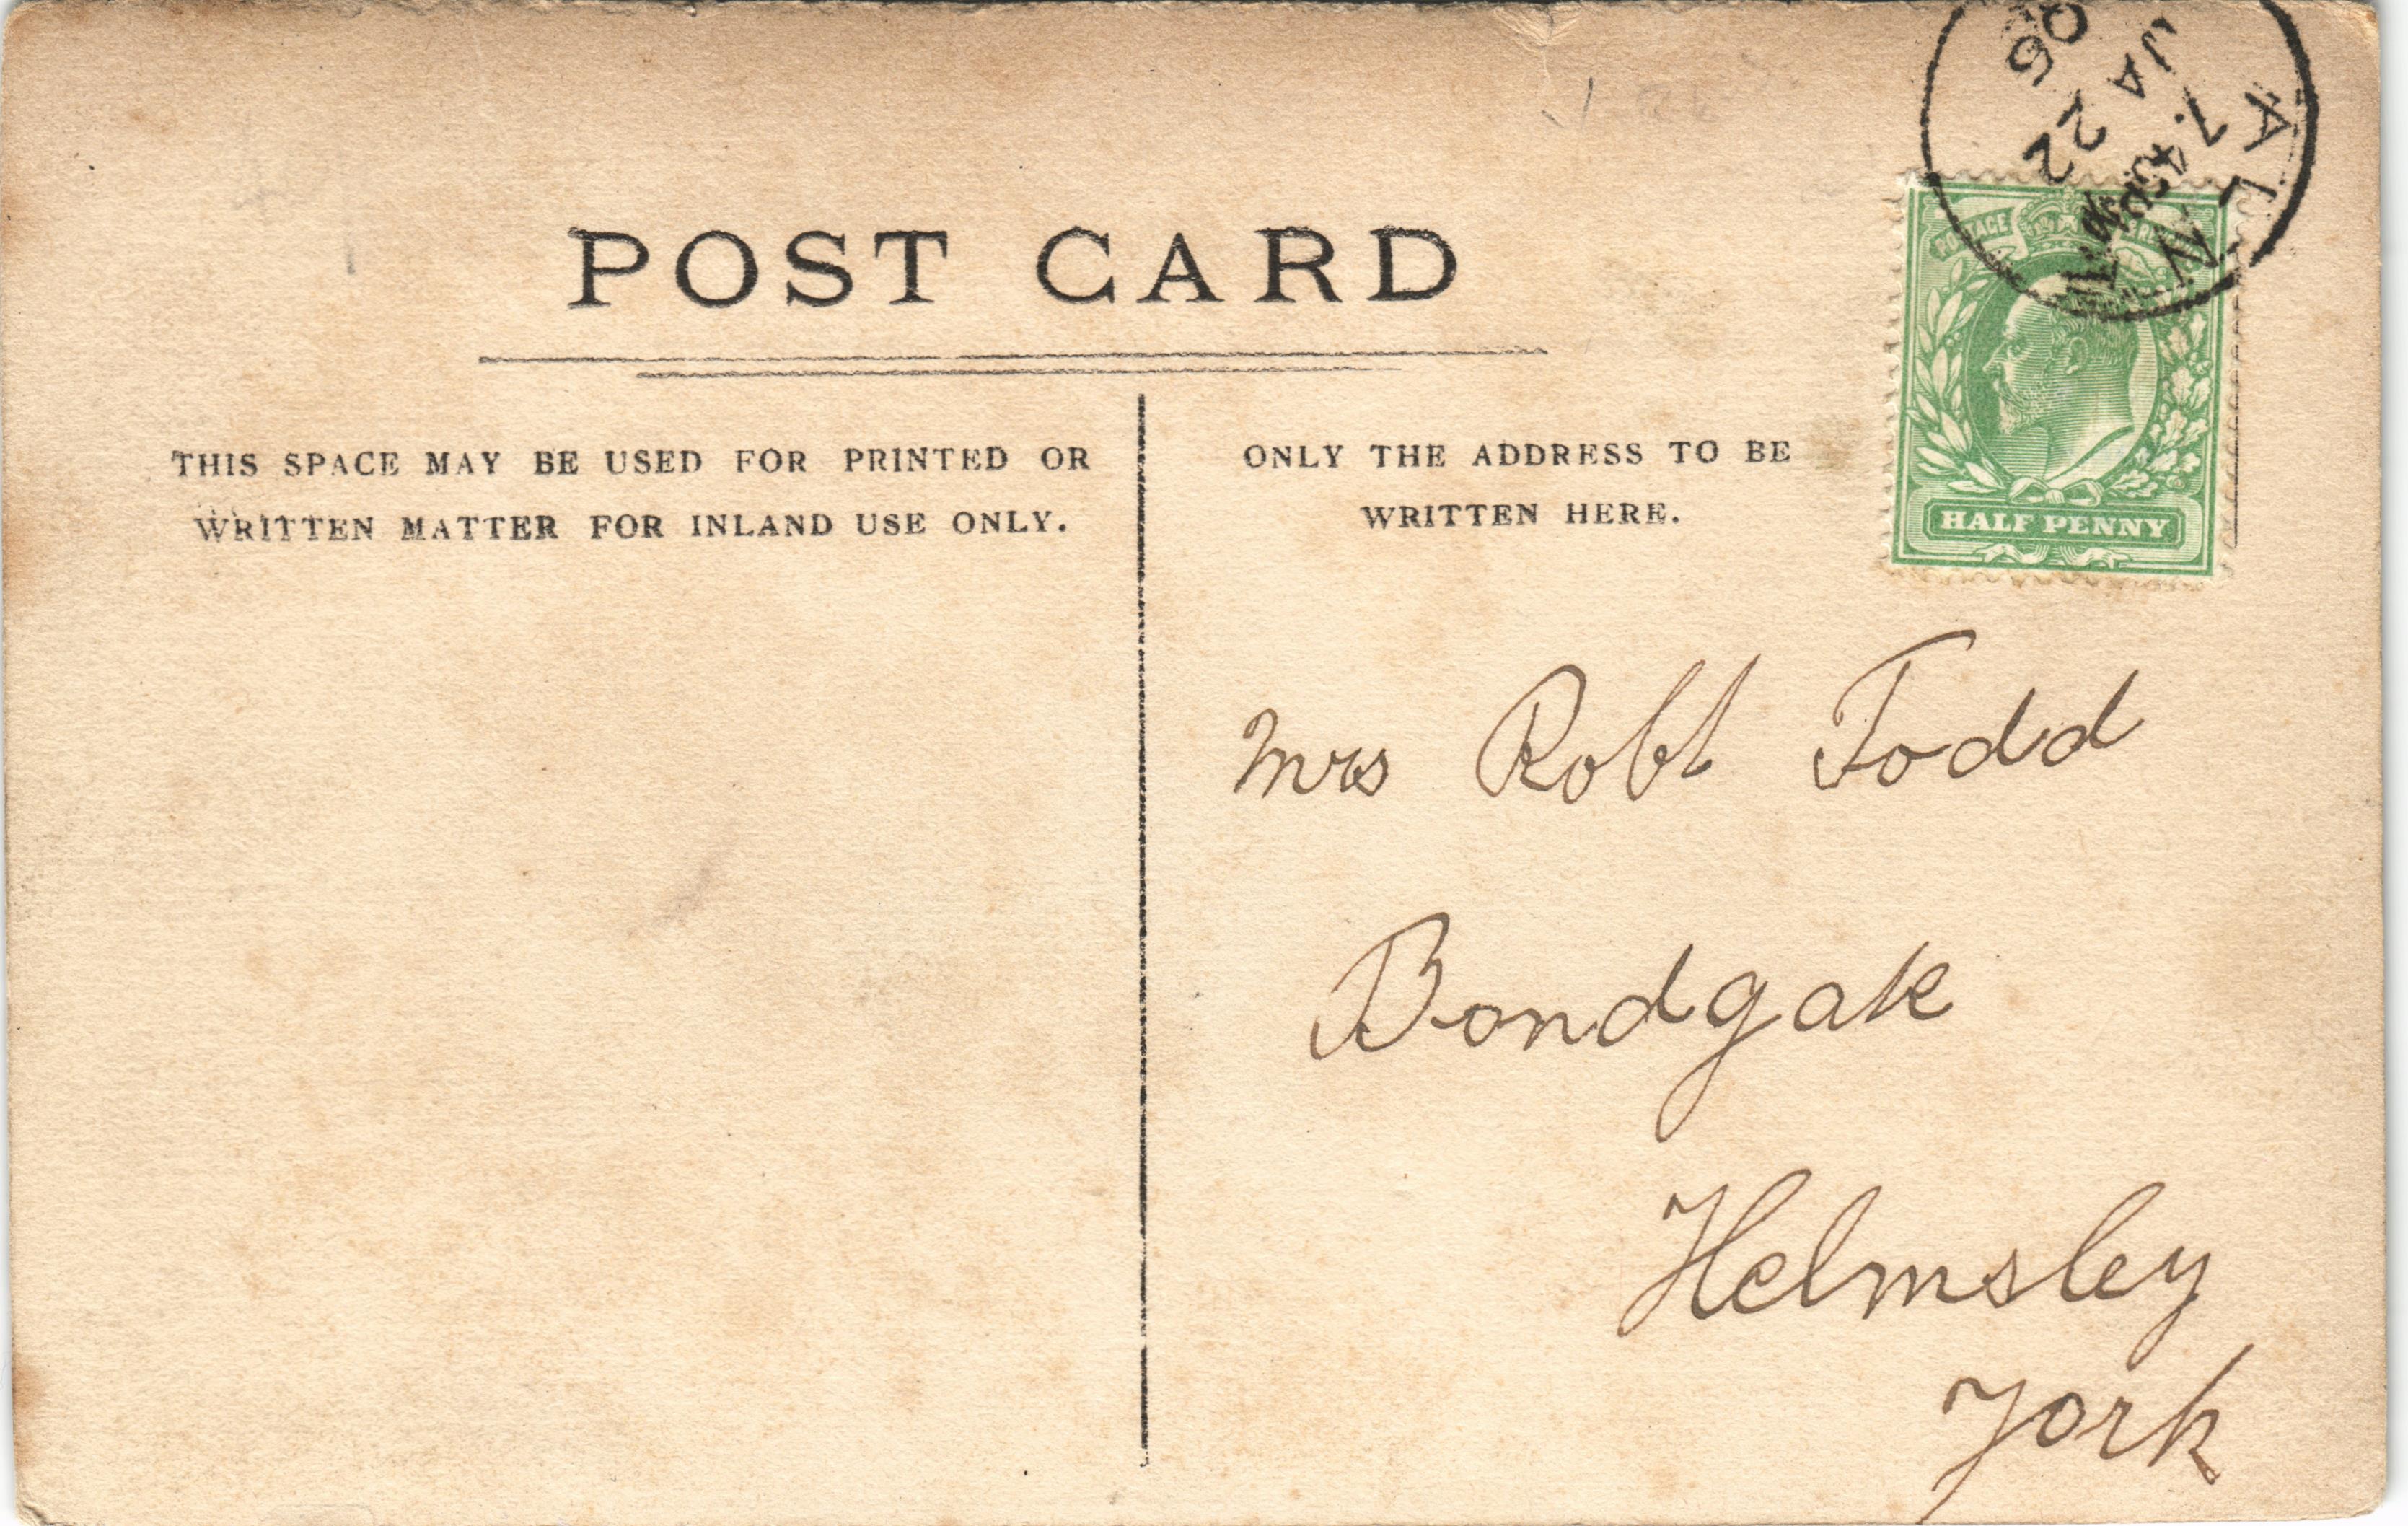 POST CARD
THIS SPACE MAY BE USED FOR PRINTED OR
WRITTEN MATTER FOR INLAND USE ONLY.
ONLY THE ADDRESS TO BE
WRITTEN HERE.
ALN
7.45PM
JA 22
POSTAGE
HALF PENNY
Mrs Robt Todd
Bondgate
Helmsley
York